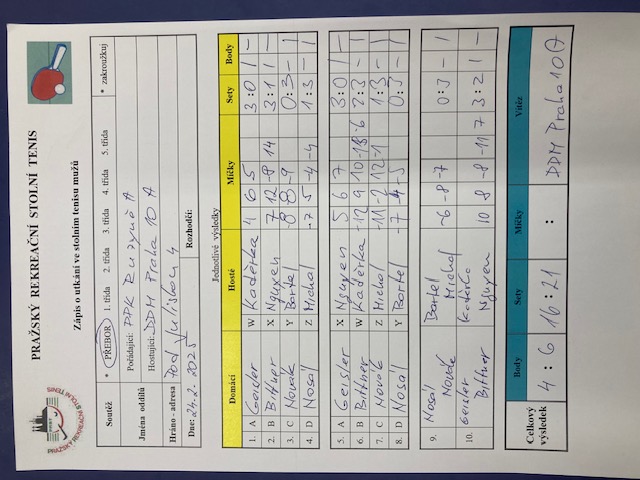 PRAŽSKÝ REKREAČNÍ STOLNÍ TENIS
Zápis o utkání ve stolním tenisu mužů
Soutěž * PŘEBOR 1. třída 2. třída 3. třída 4. třída 5. třída * zakroužkuj
Jména oddílů Pořádající: DDK Ruzyně A
Hostující: DDM Praha 10 A
Hráno - adresa Pod Juliskou 4
Dne: 24.2.2025 Rozhodčí:
Jednotlivé výsledky
Domácí Hosté Míčky Sety Body
1. A Geisler W Kaděrka 4 6 5 3:0 1 –
2. B Bittner X Nguyen 7 12 -9 14 3:1 1 –
3. C Novák Y Bartel -8 -8 -9 0:3 – 1
4. D Nosál Z Michal -7 5 -4 -4 1:3 – 1
5. A Geisler X Nguyen 5 6 7 3:0 1 –
6. B Bittner W Kaděrka -12 9 10 -13 -6 2:3 – 1
7. C Novák Z Michal -11 -2 12 -1 1:3 – 1
8. D Nosál Y Bartel -7 -4 -5 0:3 – 1
9. Nosál Novák Bartel Michal -6 -8 -7 0:3 – 1
10. Geisler Bittner Kaděrka Nguyen 10 8 -8 -11 7 3:2 1 –
Celkový výsledek
Body Sety Míčky Vítěz
4 : 6 16 : 21 : DDM Praha 10A